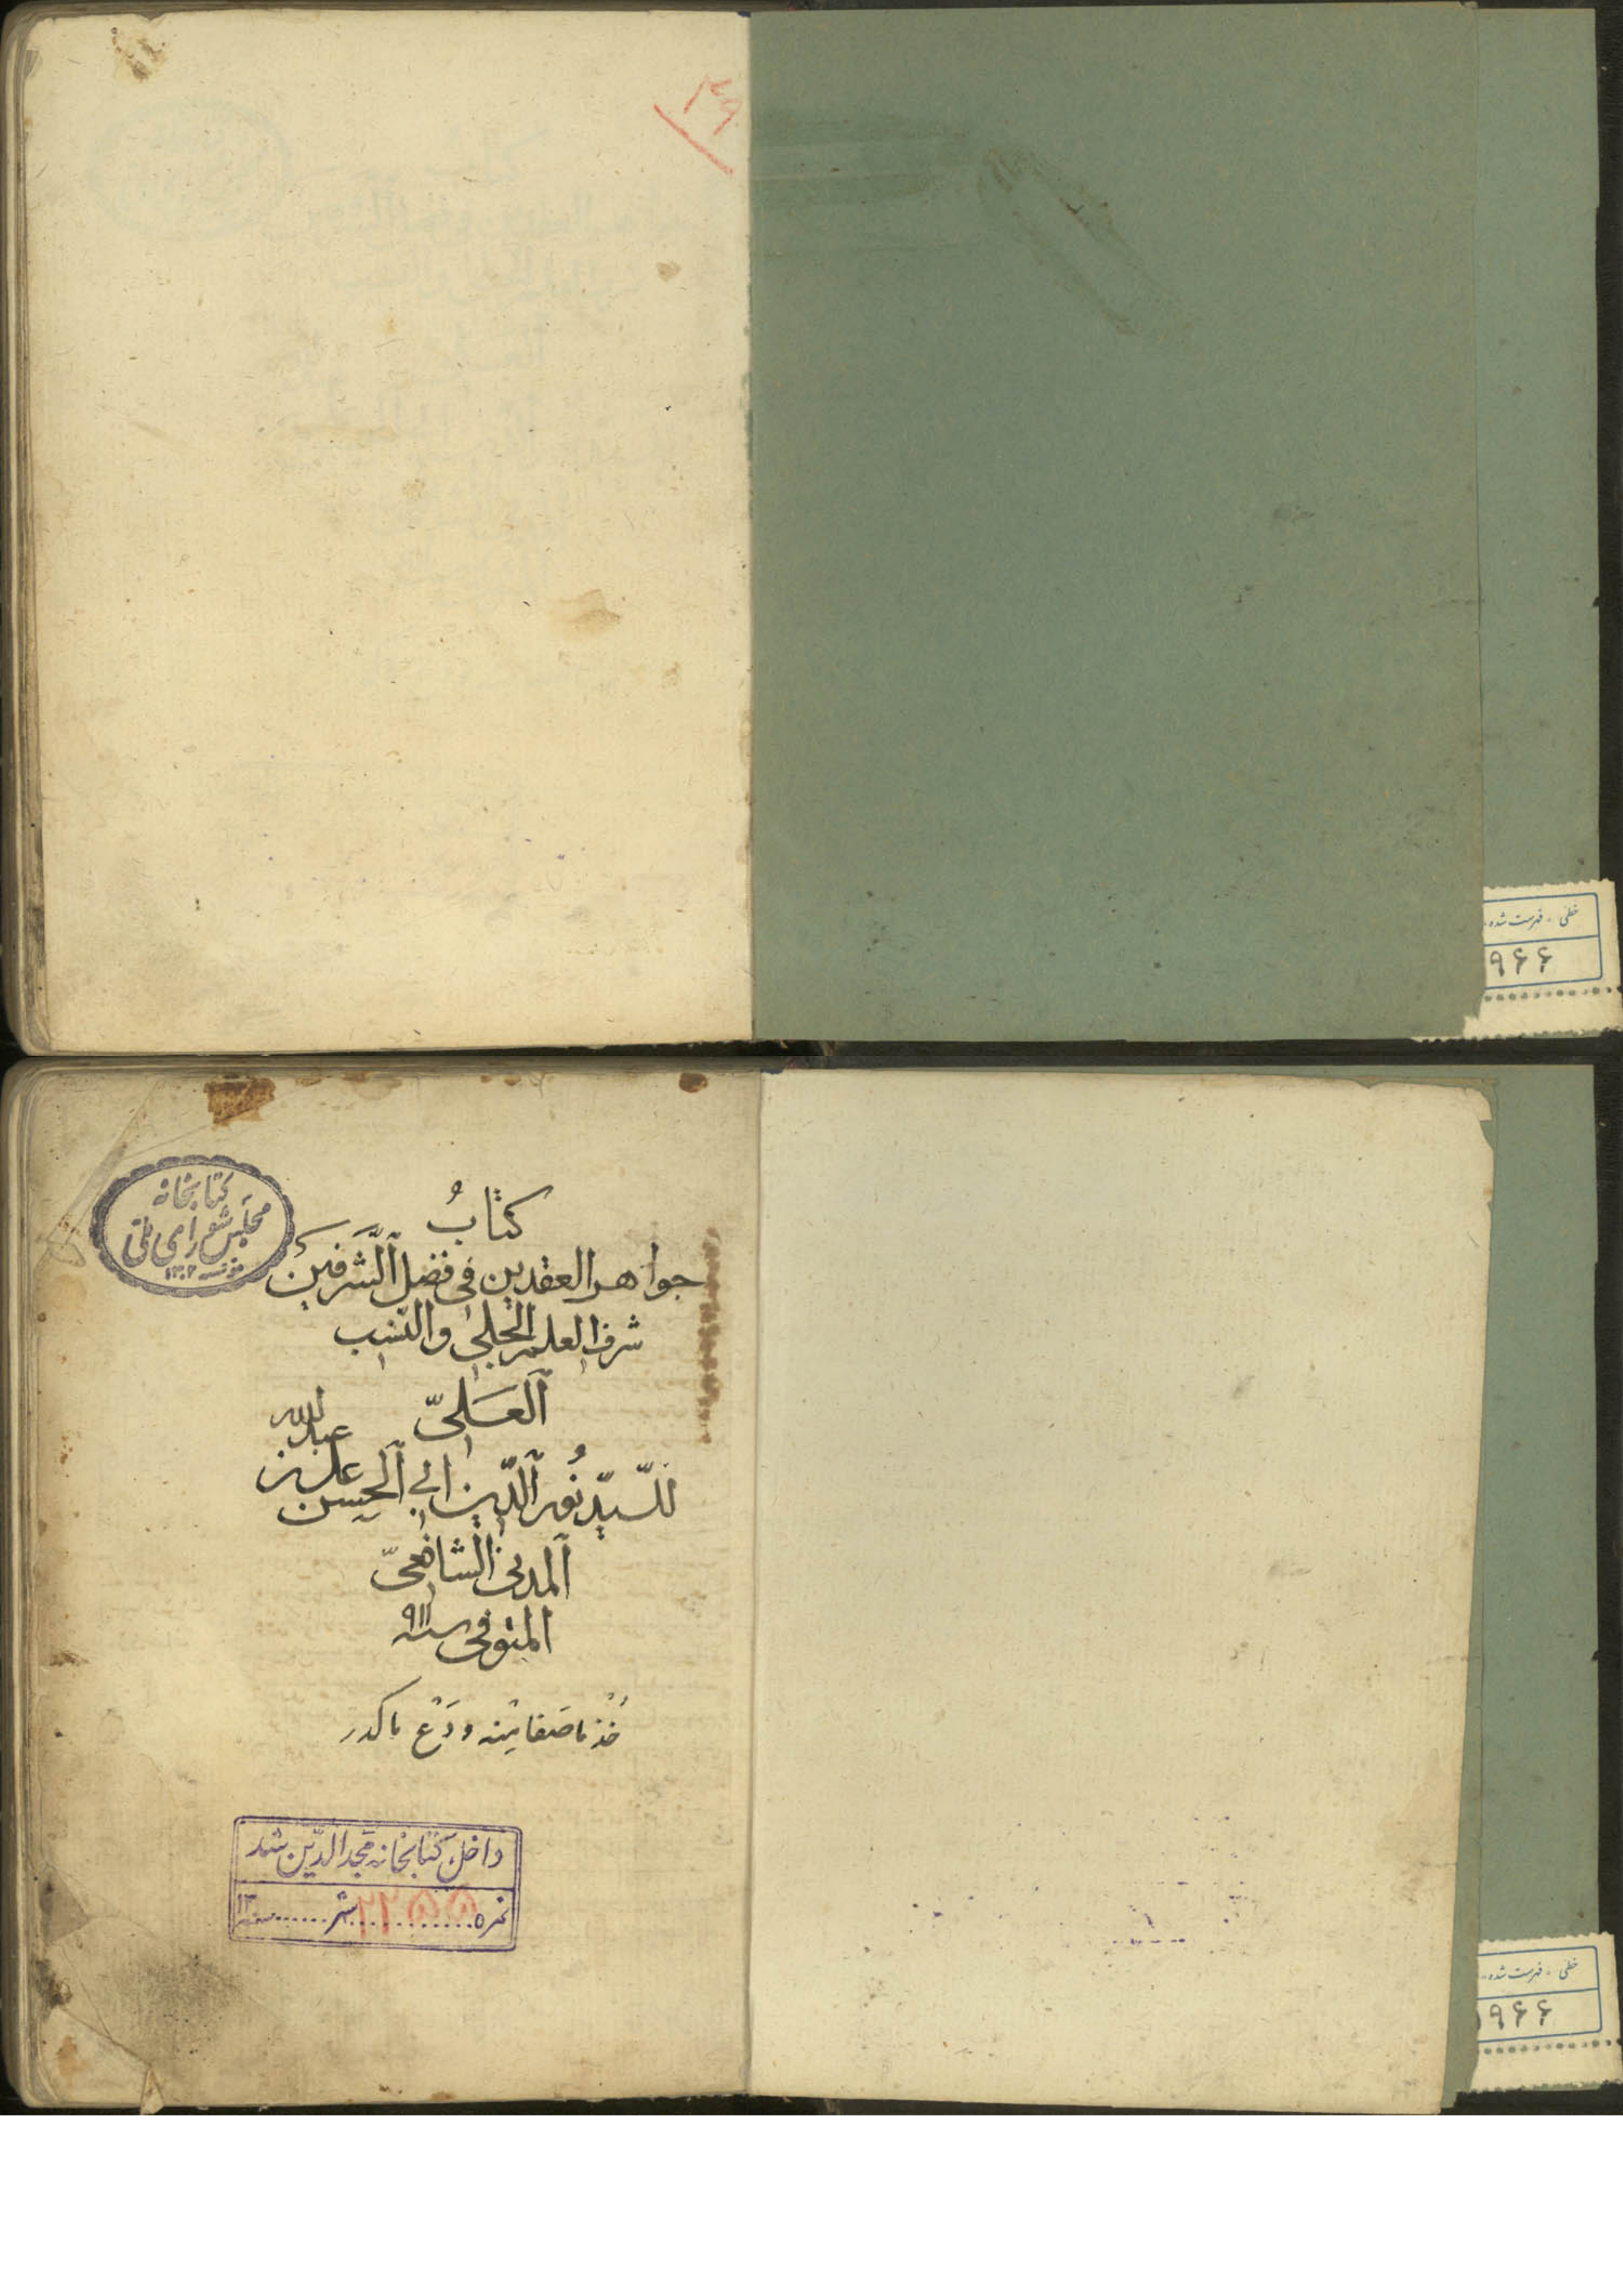 ۲۹
خطی - فهرست شده
۹۶۶
کتابخانه
مجلس شورای ملی
۱۳۰۲
كتابُ
جواهر العقدين في فضل الشرفين
شرف العلم الجلي والنسب
العَلىّ
للسيّد نُور الدّين ابي الحسن علي بن
عبدالله
المدني الشافعيّ
المتوفى سنة ٩١١
خُذ ما صَفا مِنه ودَعْ ما كدر
داخل کتابخانه مجدالدّین شد
نمره ۲۲۵۵ شهر سنه ۱۳
خطی - فهرست شده
۹۶۶